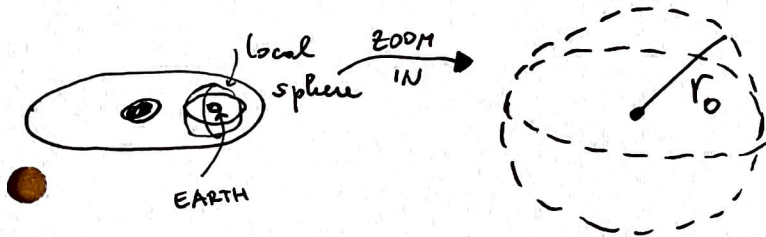 local
sphere
ZOOM
IN
r₀
EARTH